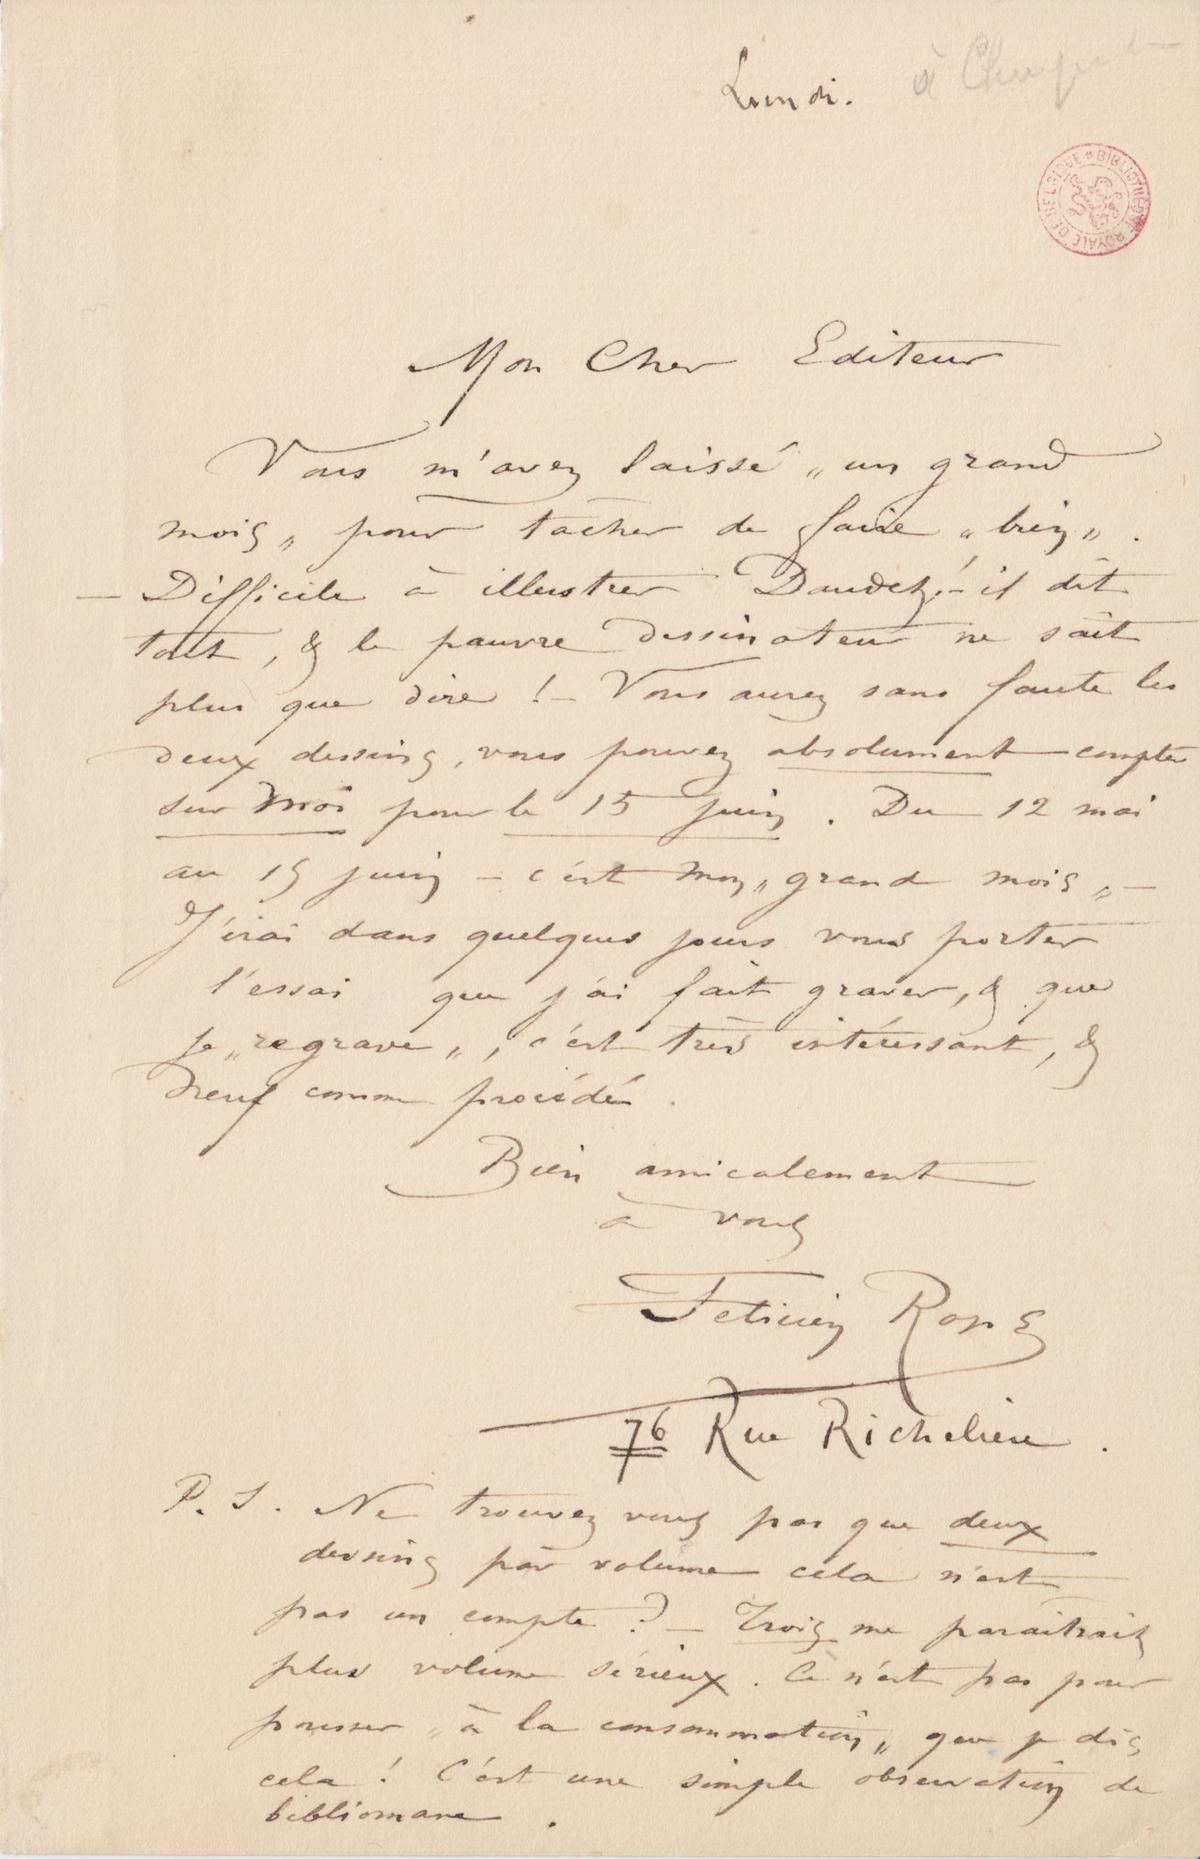 Lundi.
à
BIBLIOTHÈQUE ROYALE DE BELGIQUE
Mon Cher Editeur
Vous m'avez laissé „un grand
mois„ pour tacher de faire „bien„.
— Difficile à illustrer Daudet! – il dit
tout, & le pauvre dessinateur ne sait
plus que dire ! – Vous aurez sans faute les
deux dessins, vous pouvez absolument compter
sur moi pour le 15 juin. Du 12 mai
au 15 juin – c'est mon „grand mois„ –
J'irai dans quelques jours vous porter
l'essai que j'ai fait graver, & que
je „regrave„, c'est très intéressant, &
neuf comme procédé.
Bien amicalement
à vous
Félicien Rops
76 Rue Richelieu.
P. S. Ne trouvez vous pas que deux
dessins par volume cela n'est
pas un compte ? – Trois me paraitrait
plus volume sérieux. Ce n'est pas pour
pousser „à la consommation„ que je dis
cela ! C'est une simple observation de
bibliomane.